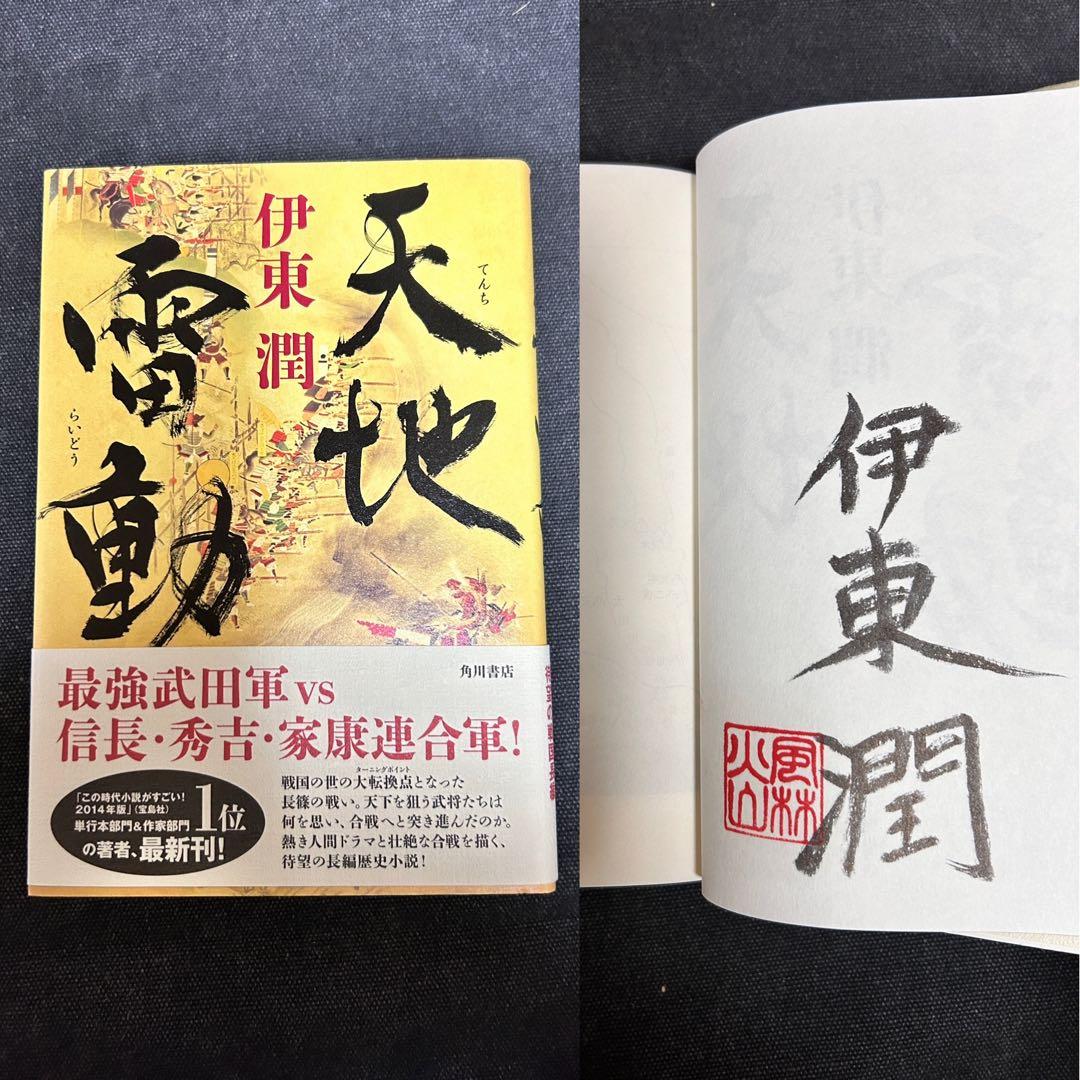 天地
てんち
伊東 潤
雷動
らいどう
角川書店
最強武田軍vs
信長・秀吉・家康連合軍!
「この時代小説がすごい!
2014年版」(宝島社)
単行本部門&作家部門
1位
の著者、最新刊!
ターニングポイント
戦国の世の大転換点となった
長篠の戦い。天下を狙う武将たちは
何を思い、合戦へと突き進んだのか。
熱き人間ドラマと壮絶な合戦を描く、
待望の長編歴史小説!
伊東潤
風林
火山